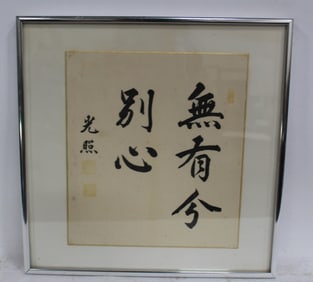 無有兮
別心
光照